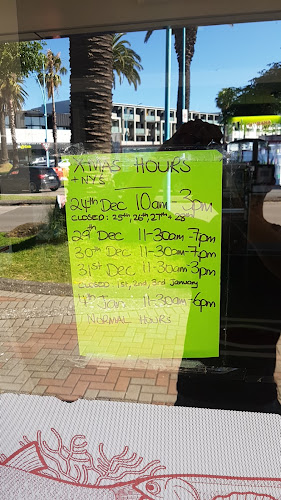 XMAS HOURS
+ NYS
24th Dec 10am - 3pm
CLOSED: 25th, 26th, 27th + 28th
29th Dec 11-30am - 7pm
30th Dec 11-30am - 7pm
31st Dec 11-30am - 3pm
CLOSED 1st, 2nd, 3rd January
4th Jan: 11-30am - 6pm
NORMAL HOURS